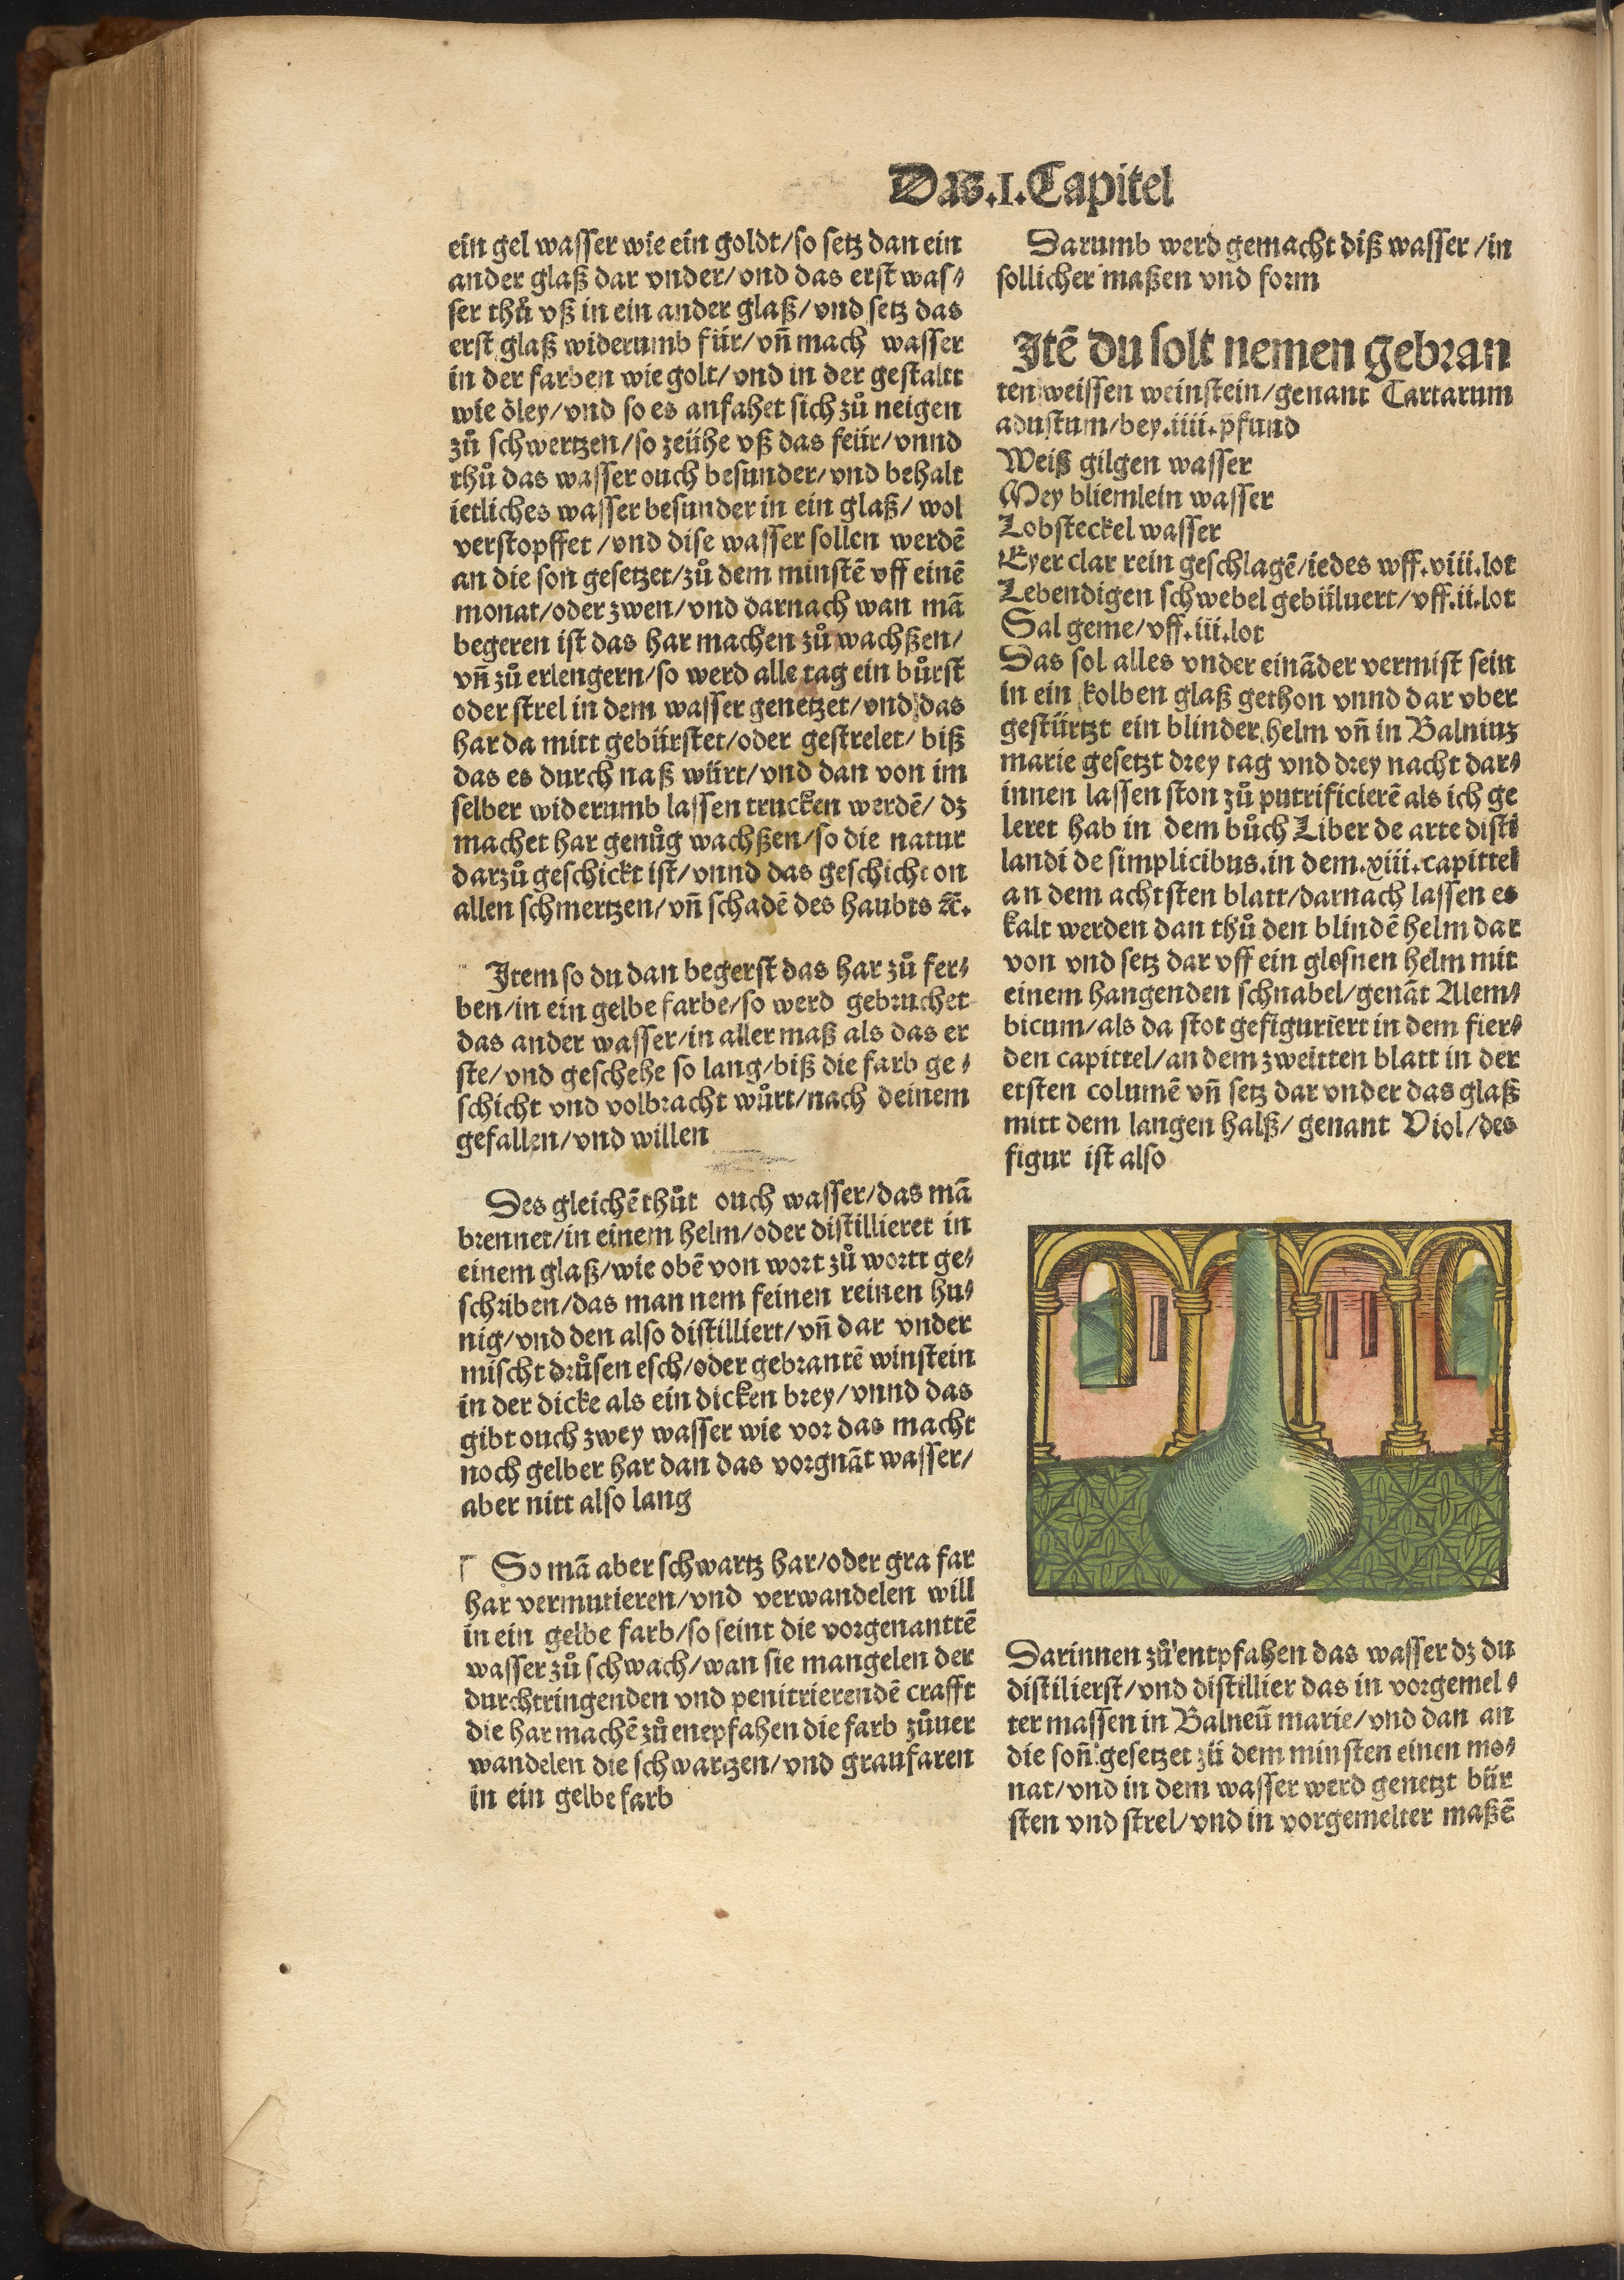 Das.I.Capitel
ein gel wasser wie ein goldt/so setz dan ein
ander glaß dar vnder/vnd das erst was⸗
ser thů vß in ein ander glaß/vnd setz das
erst glaß widerumb für/vñ mach wasser
in der farben wie golt/vnd in der gestaltt
wie öley/vnd so es anfahet sich zů neigen
zů schwertzen/so zeühe vß das feür/vnnd
thů das wasser ouch besunder/vnd behalt
ietliches wasser besunder in ein glaß/ wol
verstopffet /vnd dise wasser sollen werdē
an die son gesetzet/zů dem minstē vff einē
monat/oder zwen/vnd darnach wan mā
begeren ist das har machen zů wachßen/
vñ zů erlengern/so werd alle tag ein bůrst
oder strel in dem wasser genetzet/vnd das
har da mitt gebürstet/oder gestrelet/ biß
das es durch naß würt/vnd dan von im
selber widerumb lassen trucken werdē/ dz
machet har genůg wachßen/so die natur
darzů geschickt ist/vnnd das geschicht on
allen schmertzen/vñ schadē des haubts ⁊c.
Item so du dan begerst das har zů fer⸗
ben/in ein gelbe farbe/so werd gebruchet
das ander wasser/in aller maß als das er
ste/vnd geschehe so lang/biß die farb ge⸗
schicht vnd volbracht wůrt/nach deinem
gefallen/vnd willen
Des gleichē thůt ouch wasser/das mā
brennet/in einem helm/oder distillieret in
einem glaß/wie obē von wort zů wortt ge⸗
schriben/das man nem feinen reinen hu⸗
nig/vnd den also distilliert/vñ dar vnder
mischt drůsen esch/oder gebrantē winstein
in der dicke als ein dicken brey/vnnd das
gibt ouch zwey wasser wie vor das macht
noch gelber har dan das vorgnāt wasser/
aber nitt also lang
So mā aber schwartz har/oder gra far
har vermutieren/vnd verwandelen will
in ein gelbe farb/so seint die vorgenanttē
wasser zů schwach/wan sie mangelen der
durchtringenden vnd penitrierendē crafft
die har machē zů enepfahen die farb zůuer
wandelen die schwartzen/vnd graufaren
in ein gelbe farb
Darumb werd gemacht diß wasser /in
sollicher maßen vnd form
Itē du solt nemen gebran
ten weissen weinstein/genant Tartarum
adustum/bey.iiii.pfund
Weiß gilgen wasser
Mey bliemlein wasser
Lobsteckel wasser
Eyer clar rein geschlagē/iedes wff.viii.lot
Lebendigen schwebel gebüluert/vff.ii.lot
Sal geme/vff.iii.lot
Das sol alles vnder eināder vermist sein
in ein kolben glaß gethon vnnd dar vber
gestürtzt ein blinder helm vñ in Balniuz
marie gesetzt drey tag vnd drey nacht dar⸗
innen lassen ston zů putrificierē als ich ge
leret hab in dem bůch Liber de arte disti
landi de simplicibus.in dem.xiii.capittel
an dem achtsten blatt/darnach lassen es
kalt werden dan thů den blindē helm dar
von vnd setz dar vff ein glesnen helm mit
einem hangenden schnabel/genāt Alem⸗
bicum/als da stot gefiguriert in dem fier⸗
den capittel/an dem zweitten blatt in der
ersten columē vñ setz dar vnder das glaß
mitt dem langen halß/ genant Viol/des
figur ist also
Darinnen zů entpfahen das wasser dz du
distilierst/vnd distillier das in vorgemel⸗
ter massen in Balneū marie/vnd dan an
die soñ gesetzet zü dem minsten einen mo⸗
nat/vnd in dem wasser werd genetzt bür
sten vnd strel/vnd in vorgemelter maßē